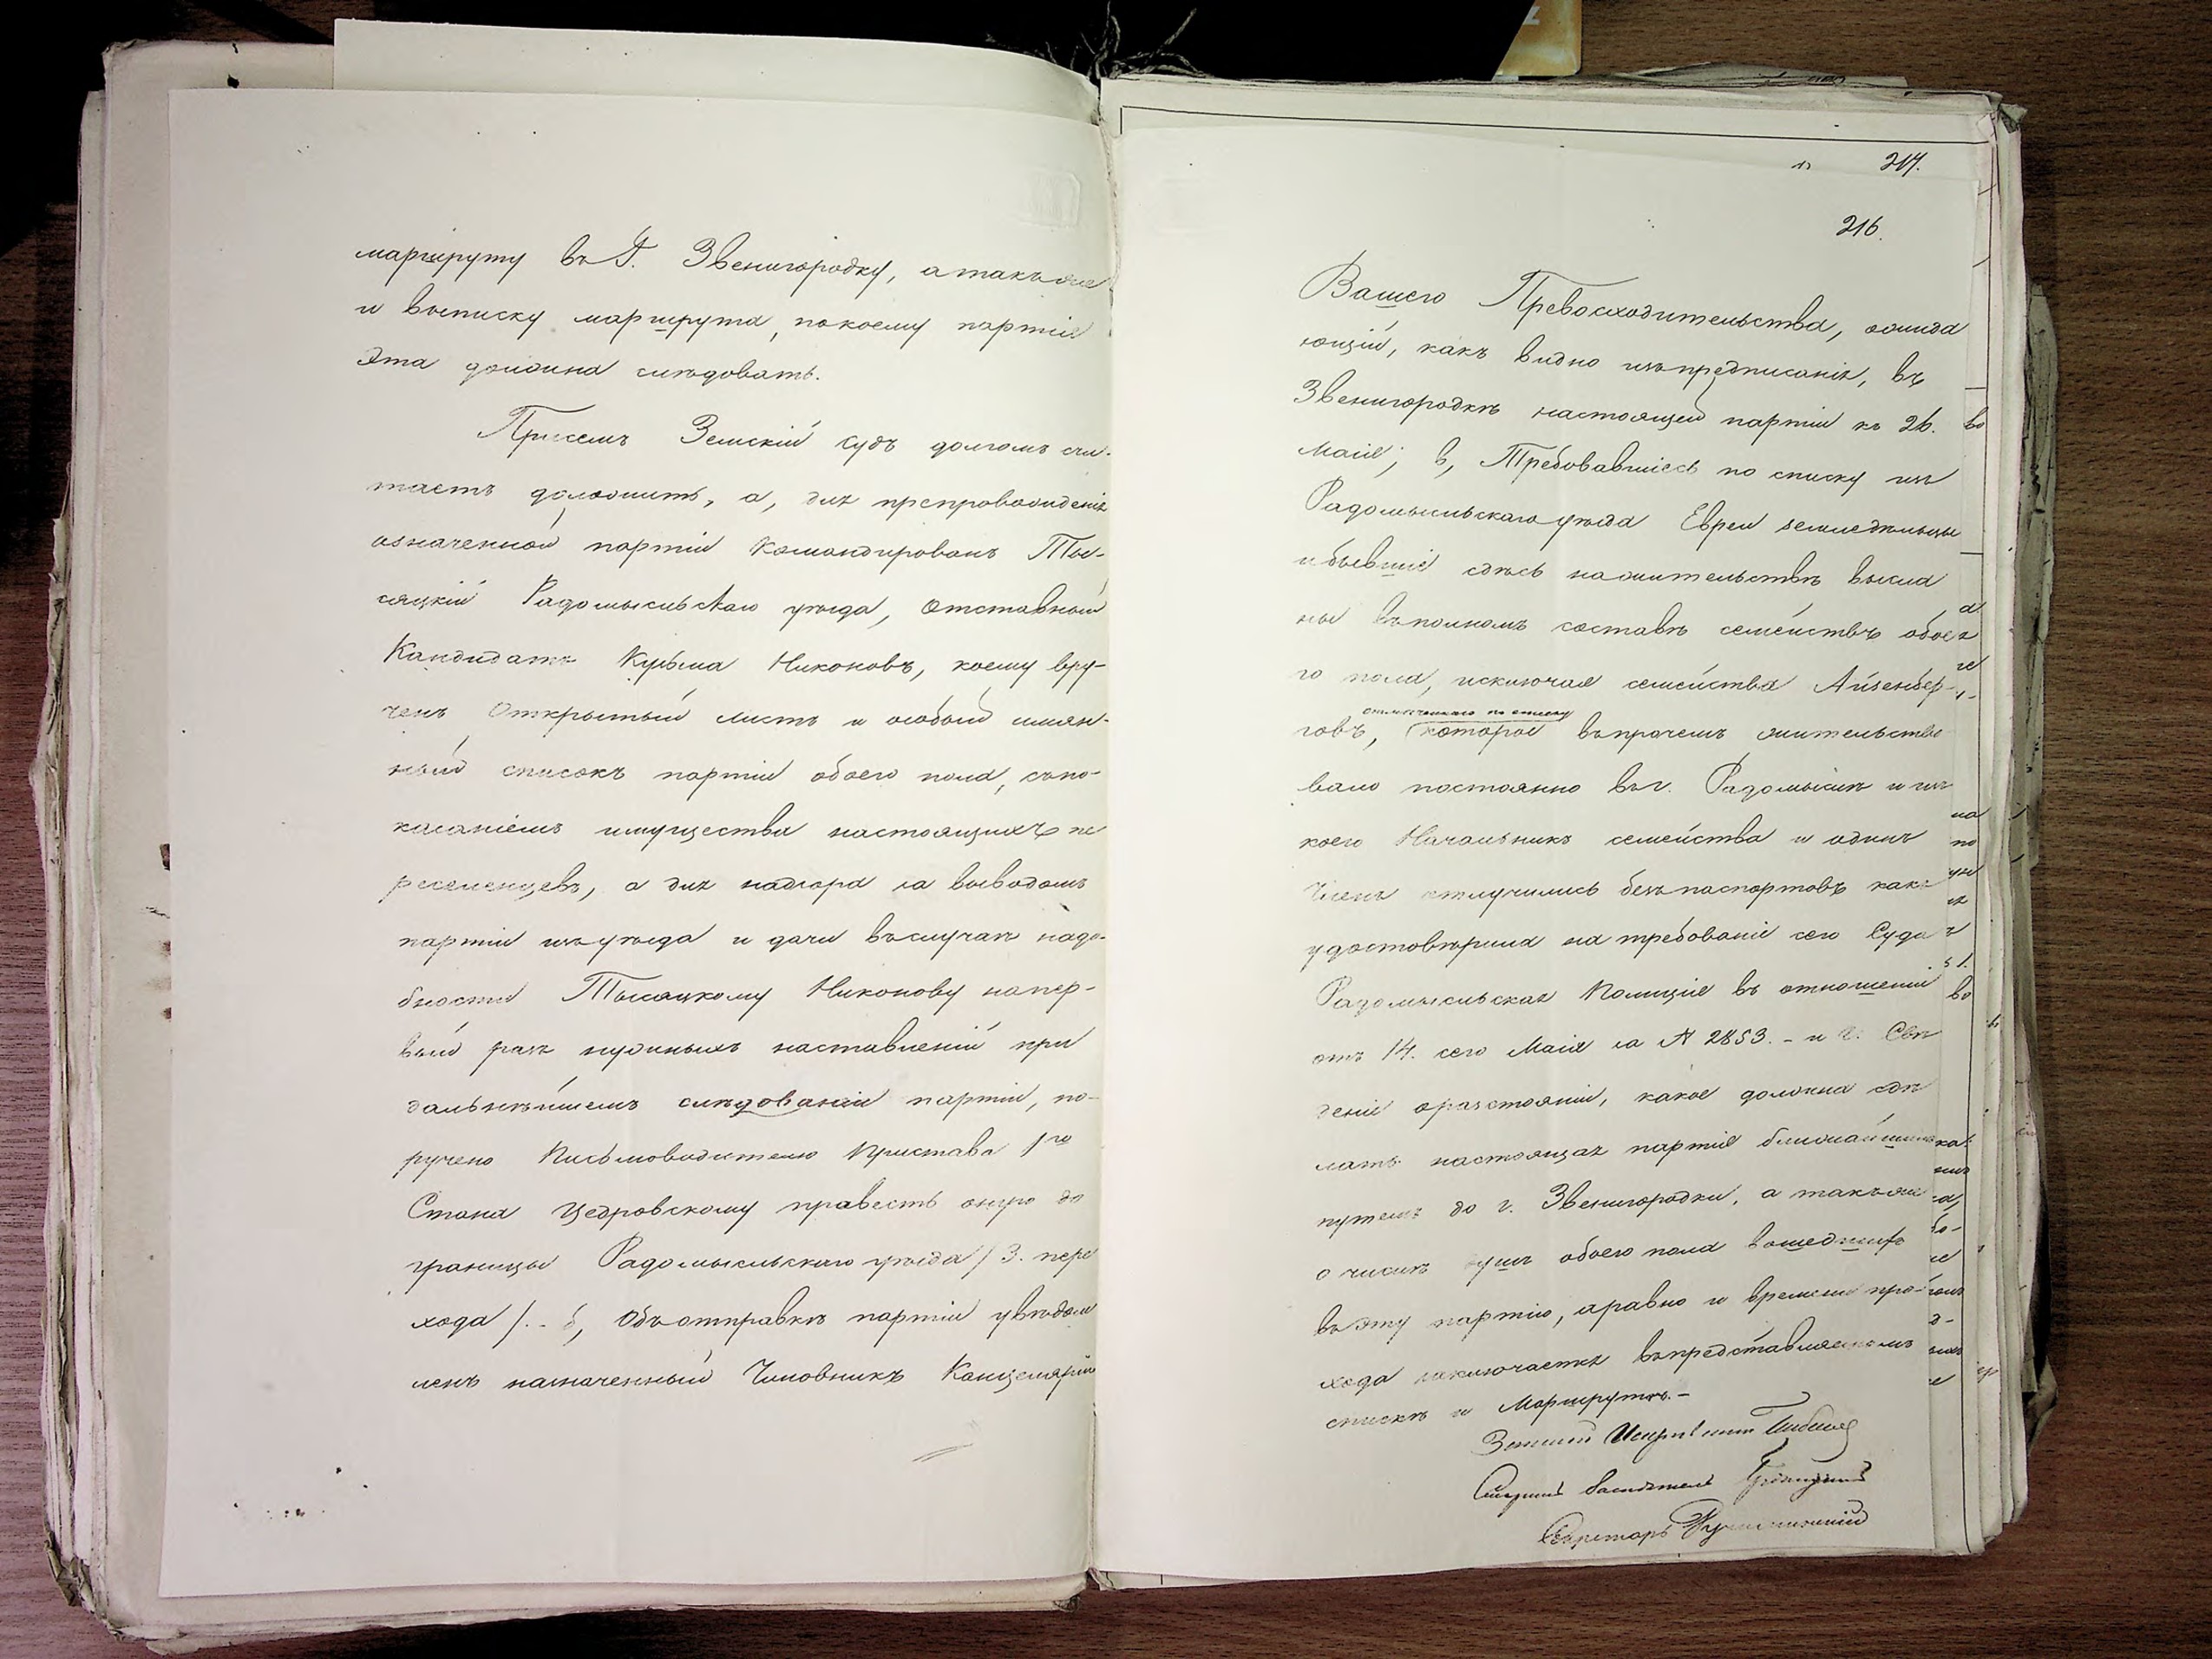 маршруту въ Г. Звенигородку, а такъ же
и выписку маршрута, по коему партія
эта должна слѣдовать.
Причемъ Земскій судъ долгомъ счи-
таетъ доложить, а, для препровожденія
означенной партіи командированъ Ты-
сяцкій Радомысльскаго уѣзда, отставный
Кандидатъ Кузьма Никоновъ, коему вру-
ченъ Открытый листъ и особый имян-
ный списокъ партіи обоего пола, съ по-
казаніемъ имущества настоящихъ пе
реселенцевъ, а для надзора за выводомъ
партіи изъ уѣзда и дачи въ случаѣ надо-
бности Тысяцкому Никонову на пер-
вый разъ нужныхъ наставленій при
дальнѣйшемъ слѣдованіи партіи, по-
ручено Письмоводителю Пристава 1го
Стана Цедровскому провесть оную до
границы Радомысльскаго уѣзда /3. пере
хода/. - б, Объ отправкѣ партіи увѣдом
ленъ назначенный Чиновникъ Канцеляріи
217.
216.
Вашего Превосходительства, ожида
ющій, какъ видно изъ предписанія, въ
Звенигородкѣ настоящей партіи къ 26.
Маія; в, Требовавшіесь по списку изъ
Радомысльскаго уѣзда Евреи земледѣльцы
и бывшіе сдѣсь на жительствѣ высла
ны въ полномъ составѣ семействъ обое
го пола, исключая семейства Айзенбер-
говъ, которое въ прочемъ жительство
вало постоянно въ г. Радомыслѣ и изъ
коего Начальникъ семейства и одинъ
Членъ отлучились безъ паспортовъ какъ
удостовѣрила на требованіе сего Суда
Радомысльская Полиція въ отношеніи
отъ 14. сего Маія за № 2853. - и г. Свѣ
деніе о разстояніи, какое должна сдѣ
лать настоящая партія ближайшимъ
путемъ до г. Звенигородки, а такъ же
о числѣ душъ обоего пола вошедшихъ
въ эту партію, а равно и времени про-
хода заключается въ представляемомъ
спискѣ и Маршрутѣ. -
Земскій Исправникъ
Секретарь